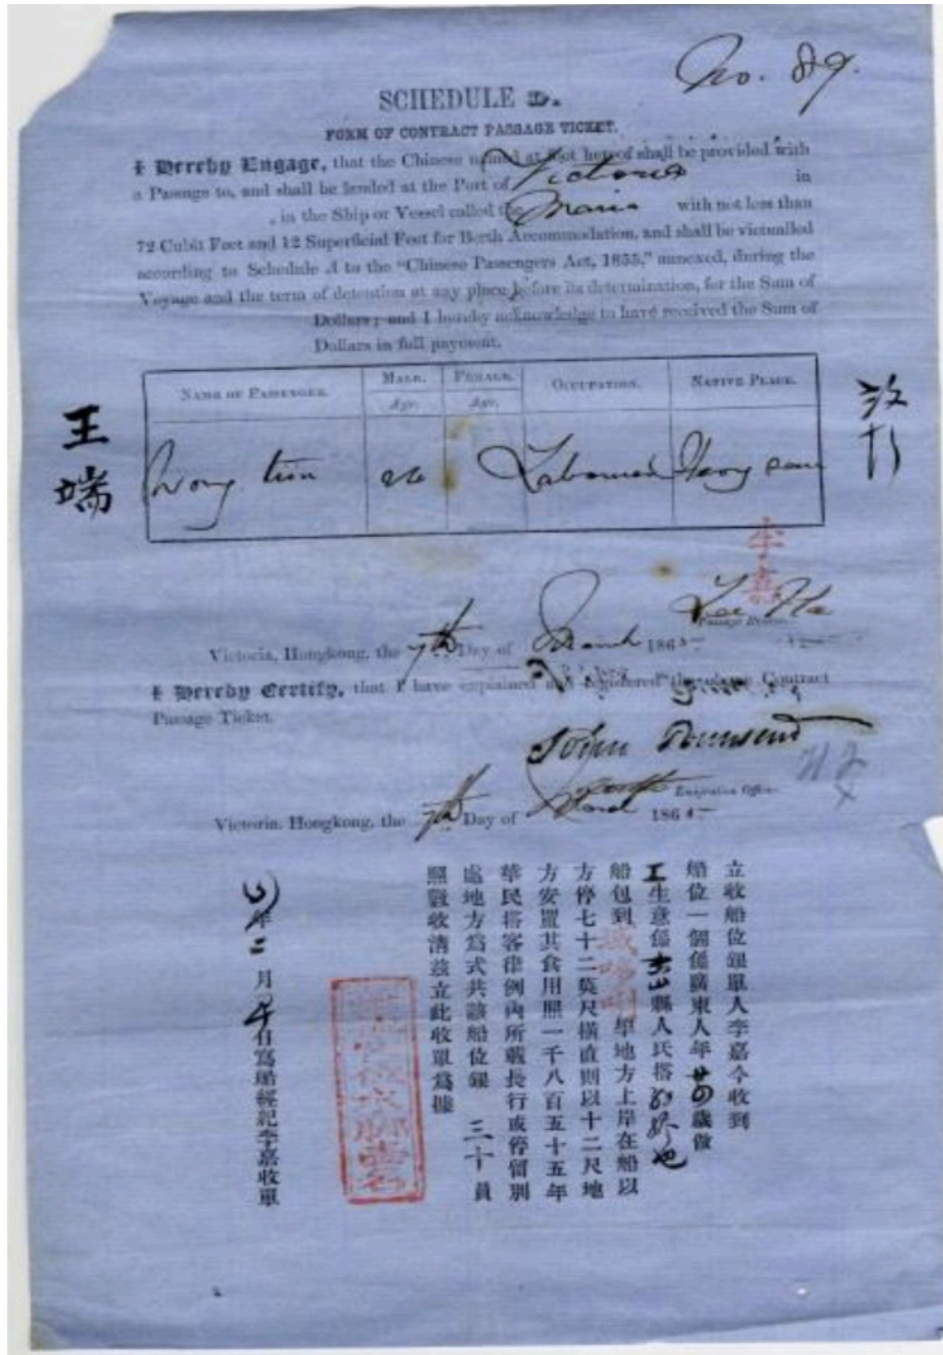 No. 89.
SCHEDULE D.
FORM OF CONTRACT PASSAGE TICKET.
I Hereby Engage, that the Chinese named at foot hereof shall be provided with
a Passage to, and shall be landed at the Port of Victoria in
, in the Ship or Vessel called the Maria with not less than
72 Cubit Feet and 12 Superficial Feet for Berth Accommodation, and shall be victualled
according to Schedule A to the "Chinese Passengers Act, 1855," annexed, during the
Voyage and the term of detention at any place before its determination, for the Sum of
Dollars; and I hereby acknowledge to have received the Sum of
Dollars in full payment.
NAME OF PASSENGER. MALE. FEMALE. OCCUPATION. NATIVE PLACE.
Age. Age.
王端
Wong
李嘉
Lee
Passage Broker.
Victoria, Hongkong, the 7th Day of March 186
I Hereby Certify, that I have explained and registered the above Contract
Passage Ticket.
John Townsend
Emigration Officer.
Victoria, Hongkong, the 7th Day of March 186
立收船位銀單人李嘉今收到
船位一個係廣東人年廿四歲做
工生意係縣人氏搭
船包到埠地方上岸在船以
方停七十二英尺橫直則以十二尺地
方安置其食用照一千八百五十五年
華民搭客律例內所載長行或停留別
處地方為式共該船位銀 三十員
照數收清茲立此收單為據
年二月日寫船經紀李嘉收單